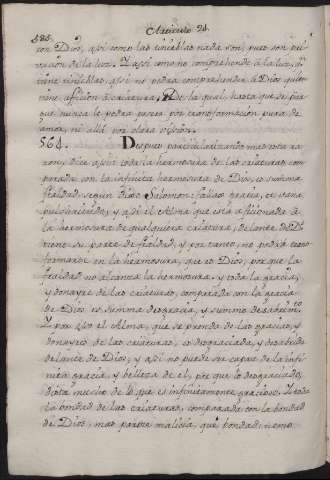 585. Articulo 21.
con Dios, asi como las tinieblas nada son, pues son pri-
vacion de la luz. Y assi como no comprehende à la luz, q.
tiene tinieblas, assi no podra comprehender à Dios quien
tiene aficion à criatura, de la qual, hasta que se pur-
gue nunca le podra poseer por transformacion pura de
amor, ni allà por clara vision.
564. Despues particularizando mas esta ra-
zon, dice assi: toda la hermosura de las criaturas com-
parada con la infinita hermosura de Dios, es summa
fealdad, segun dice Salomon: fallax gratia, et vana
pulchritudo, y assi el Alma que està aficionada à
la hermosura de qualquiera criatura, delante de Ds
tiene su parte de fealdad, y por tanto, no podrà trans-
formarse en la hermosura, que es Dios, por que la
fealdad no alcanza la hermosura. y toda la gracia,
y donayre de las criaturas, comparada con la gracia
de Dios es summa desgracia, y summo desabrimto
Y por esto el Alma, que se prenda de las gracias, y
donayres de las criaturas, es desgraciada, y desabrida
delante de Dios, y assi no puede ser capaz de la infi-
nita gracia, y belleza de el, por que lo desgraciado,
dista mucho de lo que es infinitamente gracioso. Y toda
la bondad de las criaturas, comparada con la bondad
de Dios, mas parece malicia, que bondad: